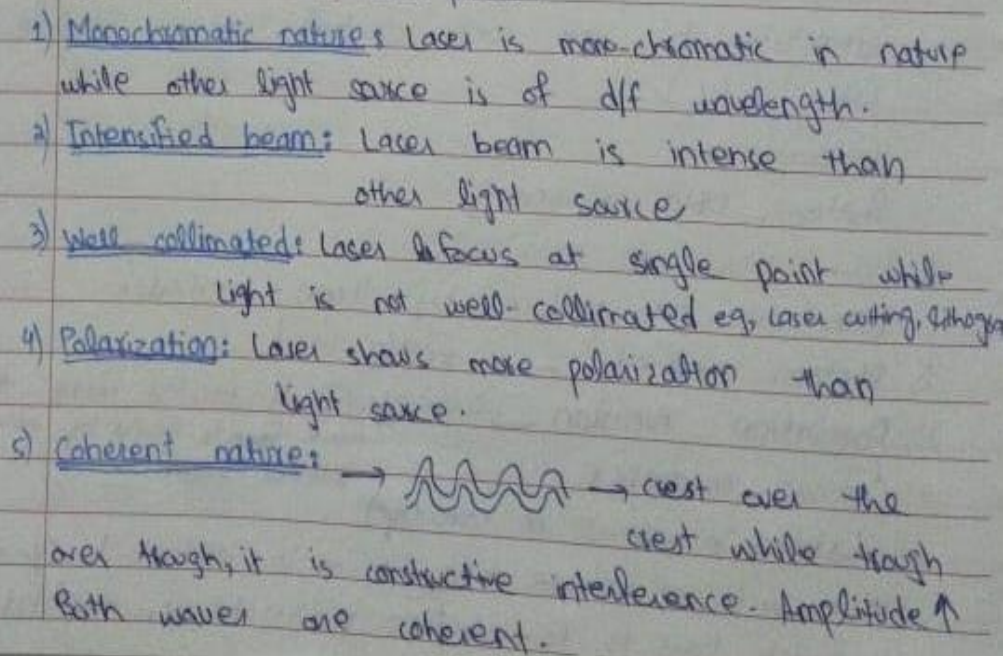 1) Monochromatic nature: Laser is mono-chromatic in nature
while other light source is of d/f wavelength.
2) Intensified beam: Laser beam is intense than
other light source
3) Well collimated: Laser focus at single point while
light is not well-collimated eg, laser cutting,
4) Polarization: Laser shows more polarization than
light source.
5) Coherent nature: → → crest over the
crest while trough
over trough, it is constructive interference. Amplitude ↑
Both waves are coherent.